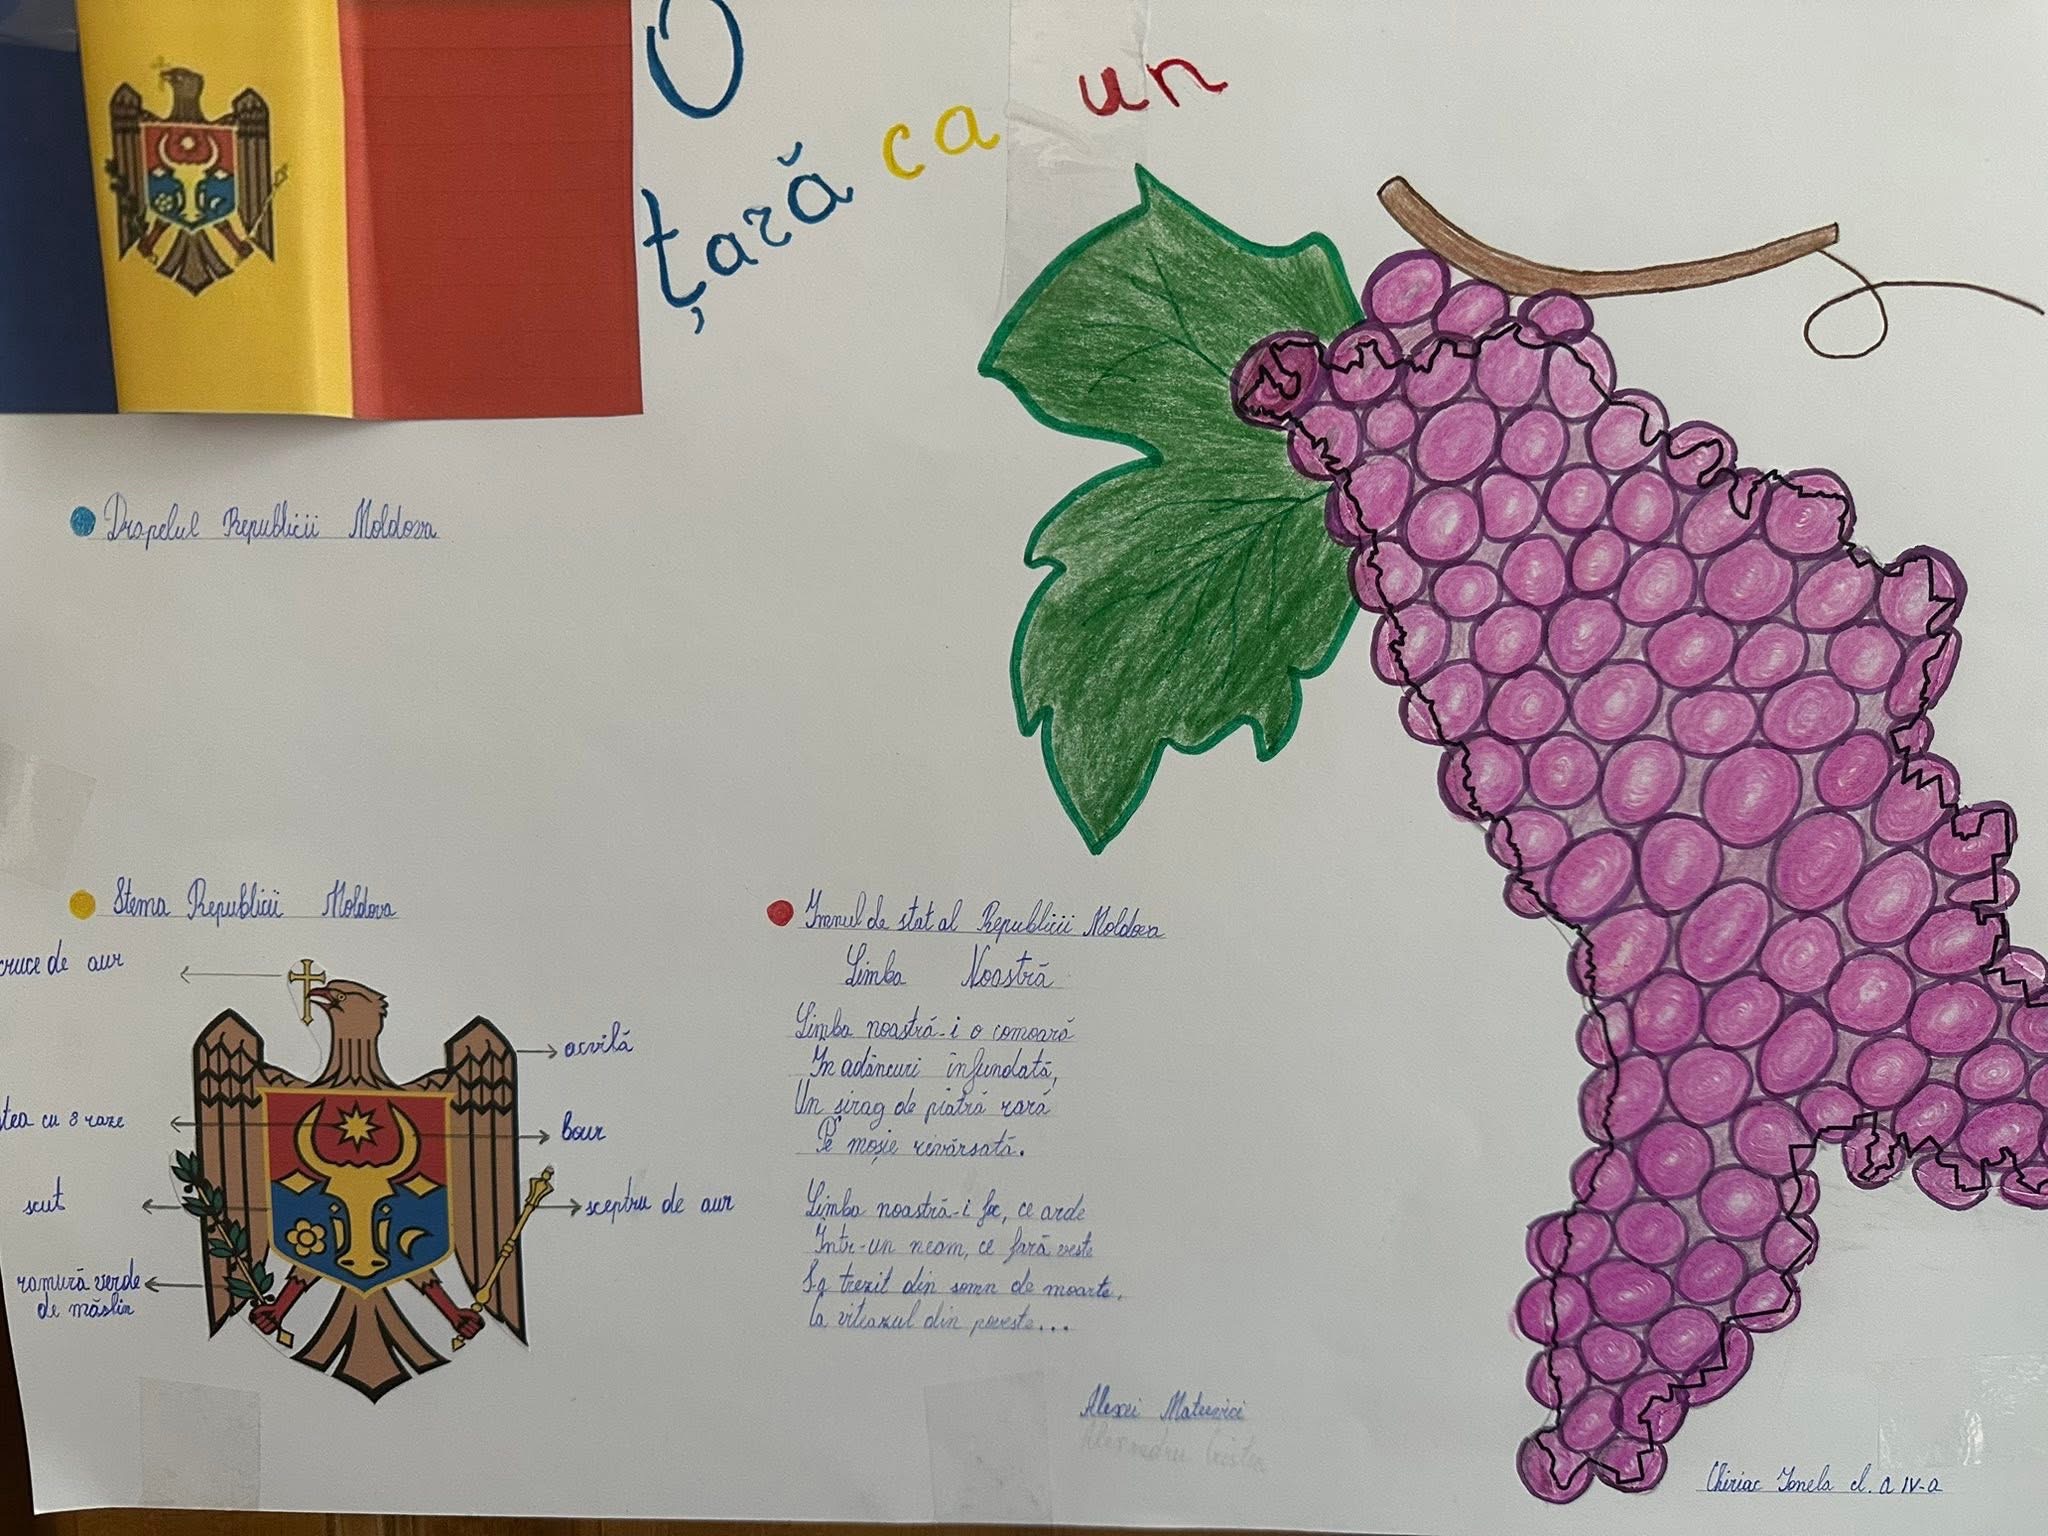 O
țară ca un
Drapelul Republicii Moldova
Stema Republicii Moldova
cruce de aur
acvilă
stea cu 8 raze
bour
scut
sceptru de aur
ramură verde
de măslin
Imnul de stat al Republicii Moldova
Limba Noastră
Limba noastră-i o comoară
În adâncuri înfundată,
Un șirag de piatră rară
Pe moșie revărsată.
Limba noastră-i foc, ce arde
Într-un neam, ce fară veste
S-a trezit din somn de moarte,
Ca viteazul din poveste...
Alexei Mateevici
Chiriac Ionela cl. a IV-a